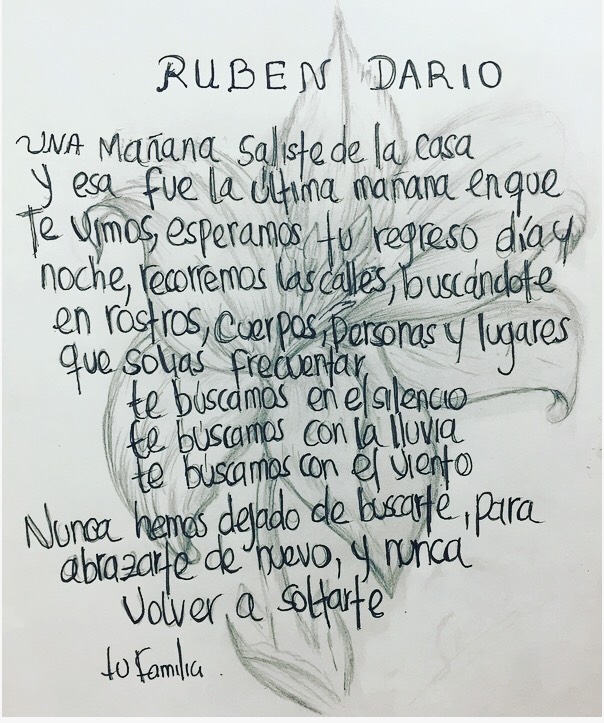 RUBEN DARIO
UNA Mañana saliste de la casa
Y esa fue la última mañana en que
Te vimos, esperamos tu regreso día y
noche, recorremos las calles, buscándote
en rostros, cuerpos, personas y lugares
que solías frecuentar
te buscamos en el silencio
te buscamos con la lluvia
te buscamos con el viento
Nunca hemos dejado de buscarte, para
abrazarte de nuevo, y nunca
volver a soltarte
tu Familia.